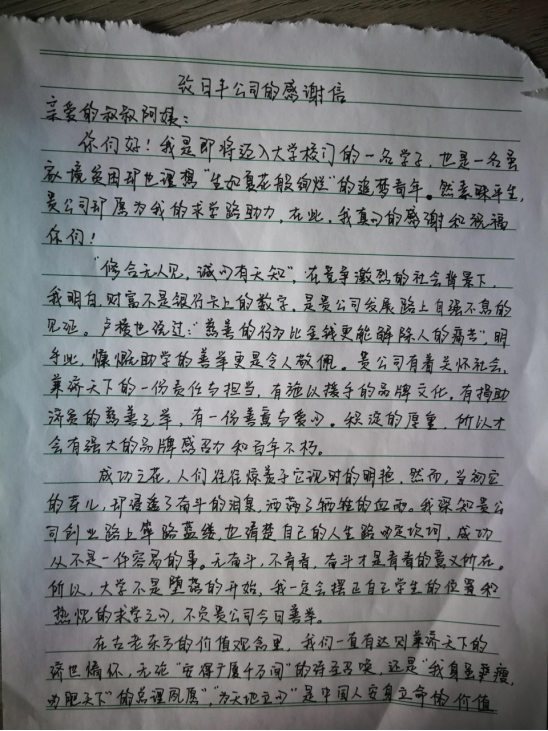 致日丰公司的感谢信
亲爱的叔叔阿姨：
你们好！我是即将迈入大学校门的一名学子，也是一名虽
家境贫困却也理想“生如夏花般绚烂”的追梦青年。然素昧平生，
贵公司却愿为我的求学路助力，在此，我真心的感谢和祝福
你们！
“修合无人见，诚心有天知”，在竞争激烈的社会背景下，
我明白，财富不是银行卡上的数字，是贵公司发展路上自强不息的
见证。卢梭也说过：“慈善的行为比金钱更能解除人的痛苦”，明
乎此，慷慨助学的善举更是令人敬佩。贵公司有着关怀社会，
兼济天下的一份责任与担当，有施以援手的品牌文化，有捐助
济贫的慈善之举，有一份善意与爱心。积淀的厚重，所以才
会有强大的品牌感召力和百年不朽。
成功之花，人们往往惊羡于它现时的明艳，然而，当初它
的芽儿，却浸透了奋斗的泪泉，洒满了牺牲的血雨。我深知贵公
司创业路上筚路蓝缕，也清楚自己的人生路必定坎坷，成功
从不是一件容易的事。无奋斗，不青春，奋斗才是青春的意义所在。
所以，大学不是堕落的开始，我一定会摆正自己学生的位置和
热忱的求学之心，不负贵公司今日善举。
在古老东方的价值观念里，我们一直有达则兼济天下的
济世情怀，无论“安得广厦千万间”的诗圣召唤，还是“我身虽瘦，
必肥天下”的总理夙愿，“为天地立心”是中国人安身立命的价值